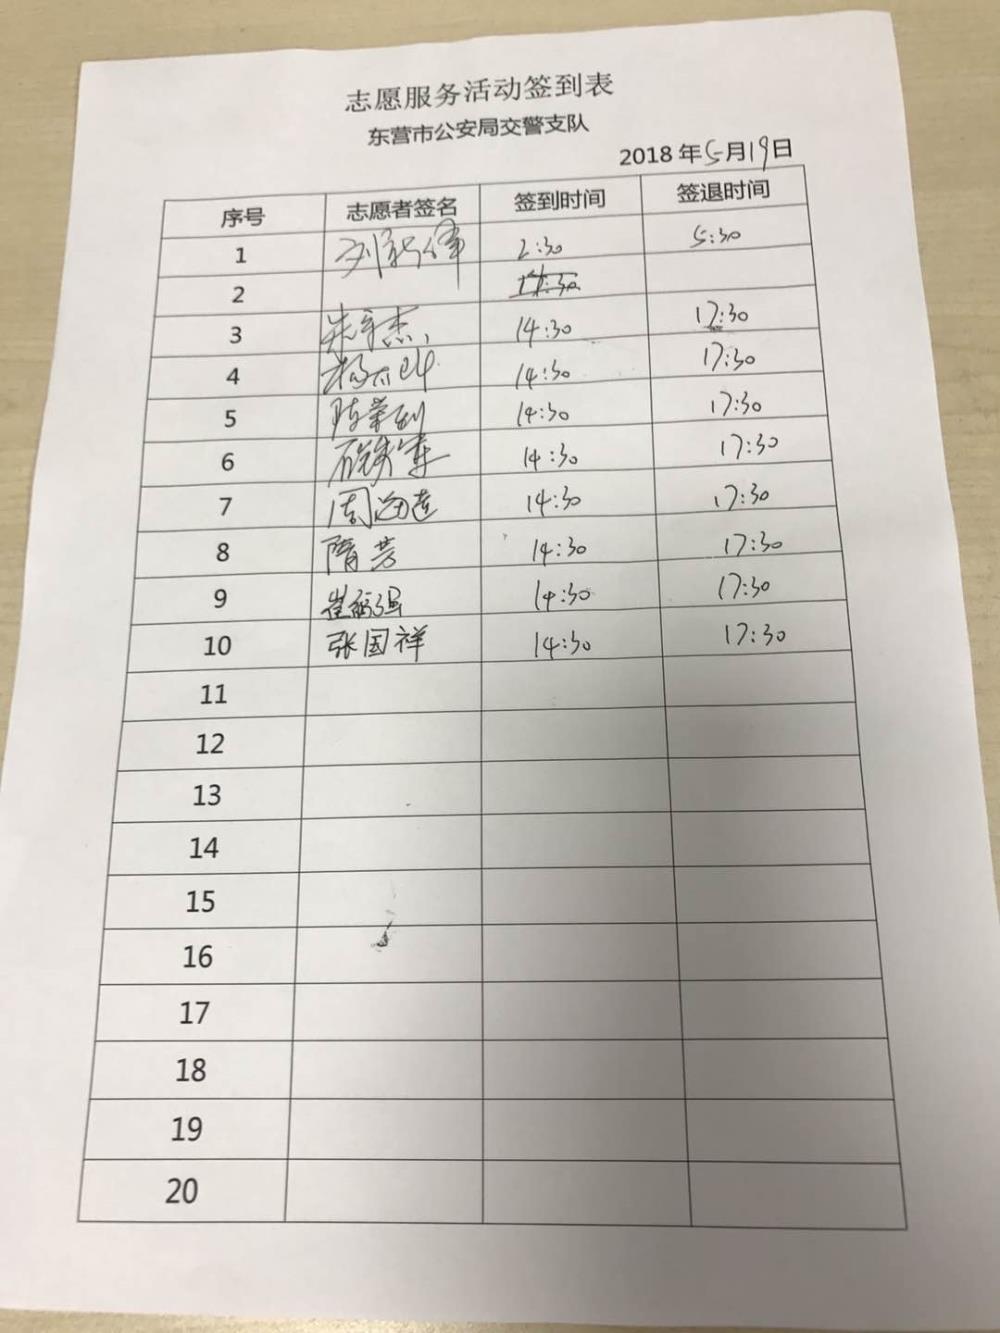 志愿服务活动签到表
东营市公安局交警支队
2018年5月19日
序号 志愿者签名 签到时间 签退时间
1 2:30 5:30
2
3 14:30 17:30
4 14:30 17:30
5 14:30 17:30
6 14:30 17:30
7 14:30 17:30
8 隋芳 14:30 17:30
9 14:30 17:30
10 张国祥 14:30 17:30
11
12
13
14
15
16
17
18
19
20